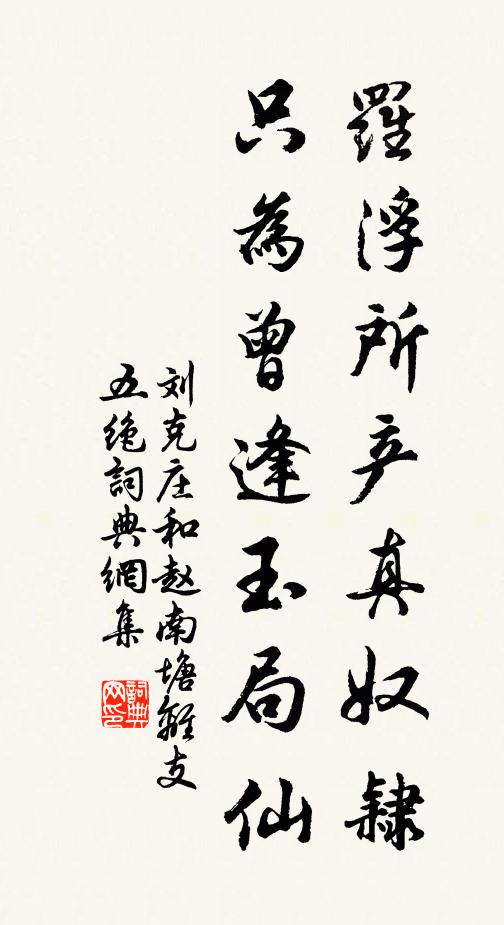 羅浮所产真奴隸
只為曾逢玉局仙
刘克庄和赵南塘離支
五绝詞典網集
詞典网印